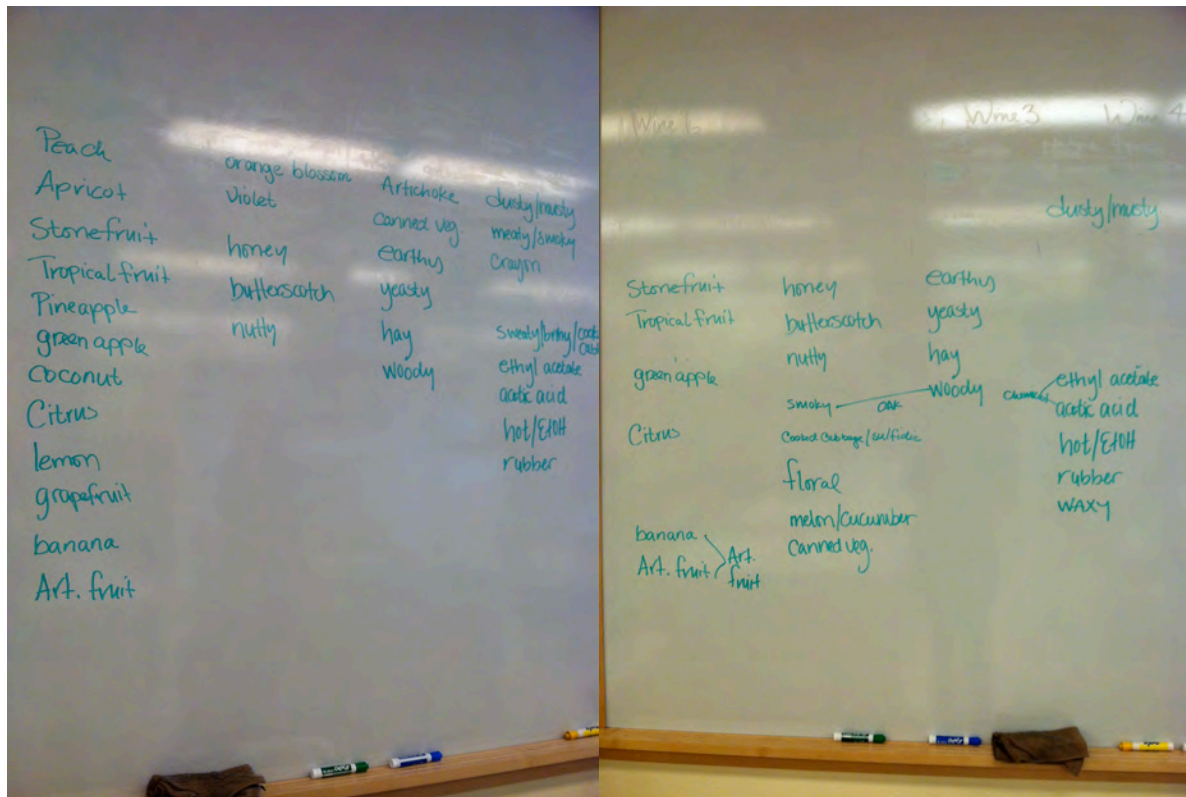 Peach
Apricot
Stonefruit
Tropical fruit
Pineapple
green apple
Coconut
Citrus
lemon
grapefruit
banana
Art. fruit
orange blossom
Violet
honey
butterscotch
nutty
Artichoke
Canned veg.
earthy
yeasty
hay
woody
dusty/musty
meaty/smoky
Crayon
sweaty/briny/
ethyl acetate
acetic acid
hot/EtOH
rubber
Wine 6
Wine 3
Wine 4
Stonefruit
Tropical fruit
green apple
Citrus
banana
Art. fruit
Art.
fruit
honey
butterscotch
nutty
smoky
OAK
Cooked Cabbage/sulfidic
floral
melon/cucumber
Canned veg.
earthy
yeasty
hay
woody
dusty/musty
ethyl acetate
acetic acid
hot/EtOH
rubber
WAXY